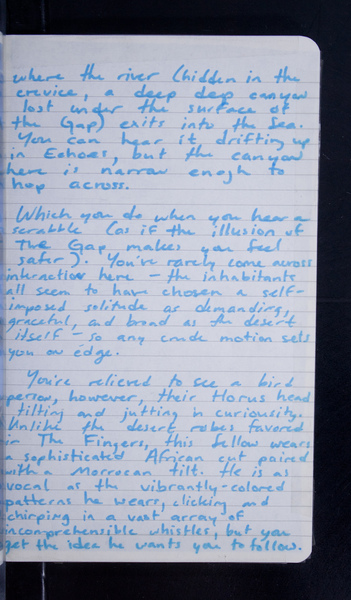 where the river (hidden in the
crevice, a deep deep canyon
lost under the surface of
the Gap) exits into the Sea.
You can hear it drifting up
in Echoes, but the canyon
here is narrow enogh to
hop across.
Which you do when you hear a
scrabble (as if the illusion of
The Gap makes you feel
safer). You've rarely come across
interaction here – the inhabitants
all seem to have chosen a self-
imposed solitude as demanding,
graceful, and broad as the desert
itself – so any crude motion sets
you on edge.
You're relieved to see a bird
person, however, their Horus head
tilting and jutting in curiousity.
Unlike the desert robes favored
in The Fingers, this fellow wears
a sophisticated African cut paired
with a Morrocan tilt. He is as
vocal as the vibrantly-colored
patterns he wears, clicking and
chirping in a vast array of
incomprehensible whistles, but you
get the idea he wants you to follow.